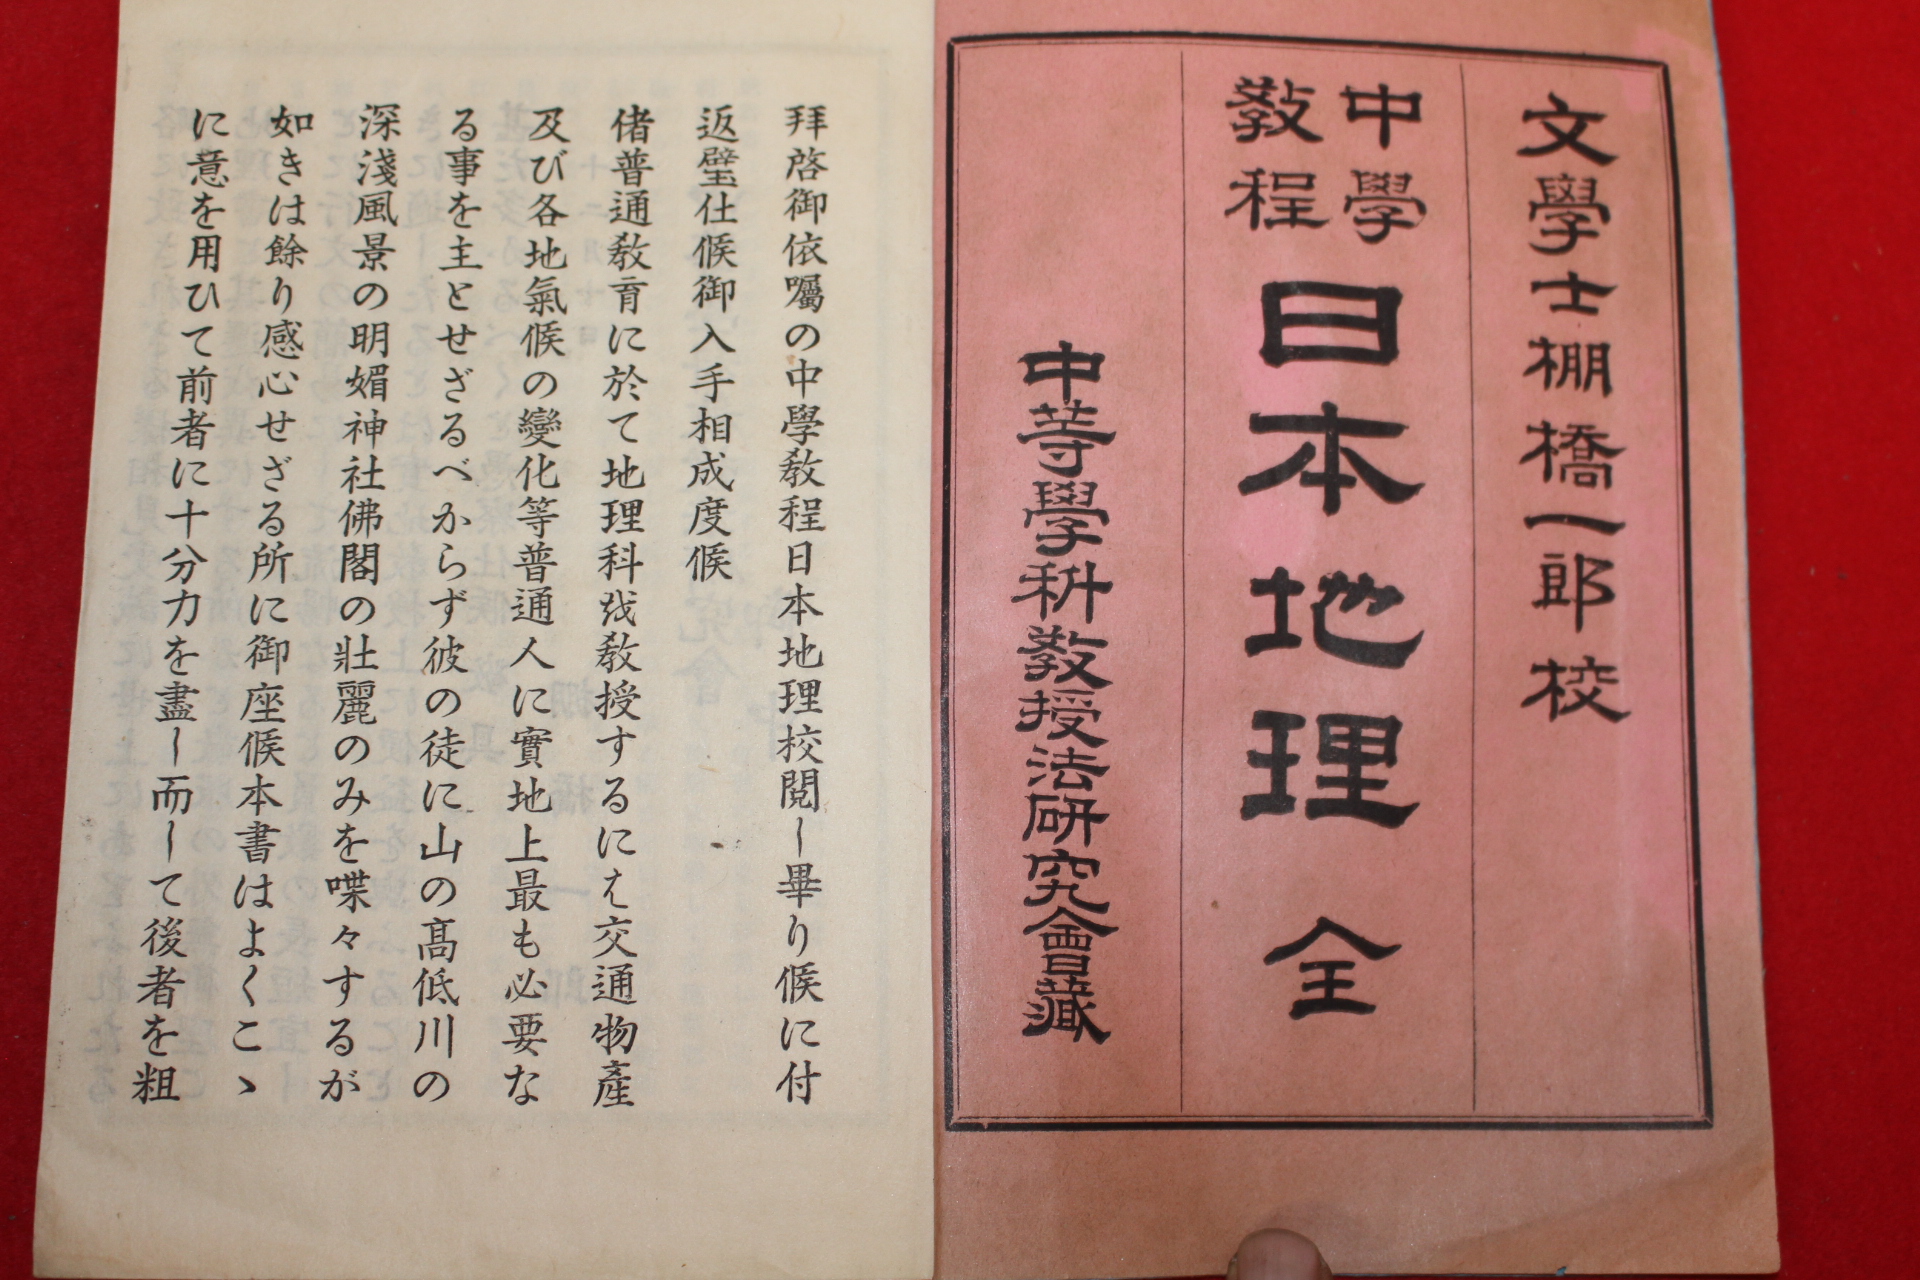 文學士棚橋一郎校
中學教程日本地理全
中等學科教授法研究會藏
拜啓御依囑の中學教程日本地理校閲し畢り候に付
返璧仕候御入手相成度候
偖普通教育に於て地理科を教授するには交通物產
及び各地氣候の變化等普通人に實地上最も必要な
る事を主とせざるべからず彼の徒に山の髙低川の
深淺風景の明媚神社佛閣の壯麗のみを喋々するが
如きは餘り感心せざる所に御座候本書はよくこゝ
に意を用ひて前者に十分力を盡し而して後者を粗